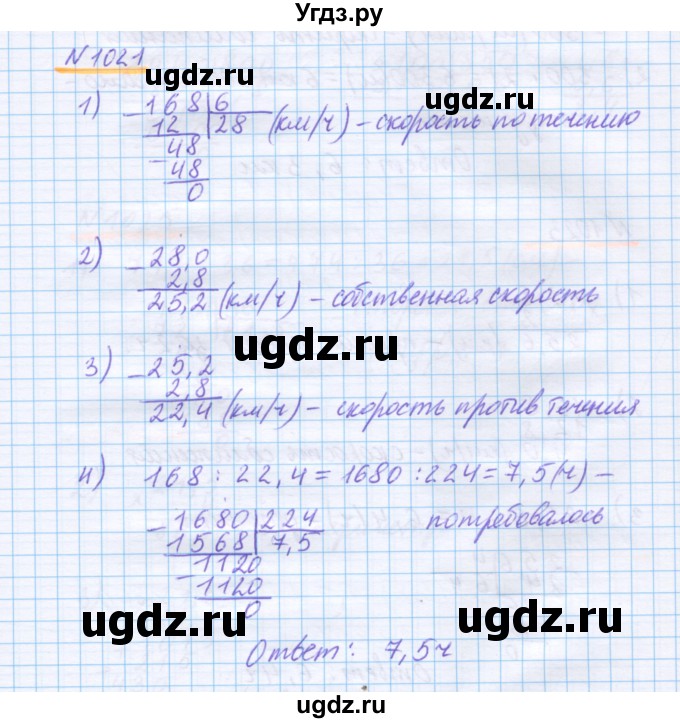 Угдз.ру
N 1021
ugdz.ru
1) − 168 | 6
12 | 28 (км/ч) – скорость по течению
− 48
48
0
2) − 28,0
2,8
25,2 (км/ч) – собственная скорость
ugdz.ru
3) − 25,2
2,8
22,4 (км/ч) – скорость против течения
ugdz.ru
4) 168 : 22,4 = 1680 : 224 = 7,5 (ч) –
потребовалось
− 1680 | 224
1568 | 7,5
− 1120
1120
0
ugdz.ru
ugdz.ru
Ответ: 7,5 ч
ugdz.ru